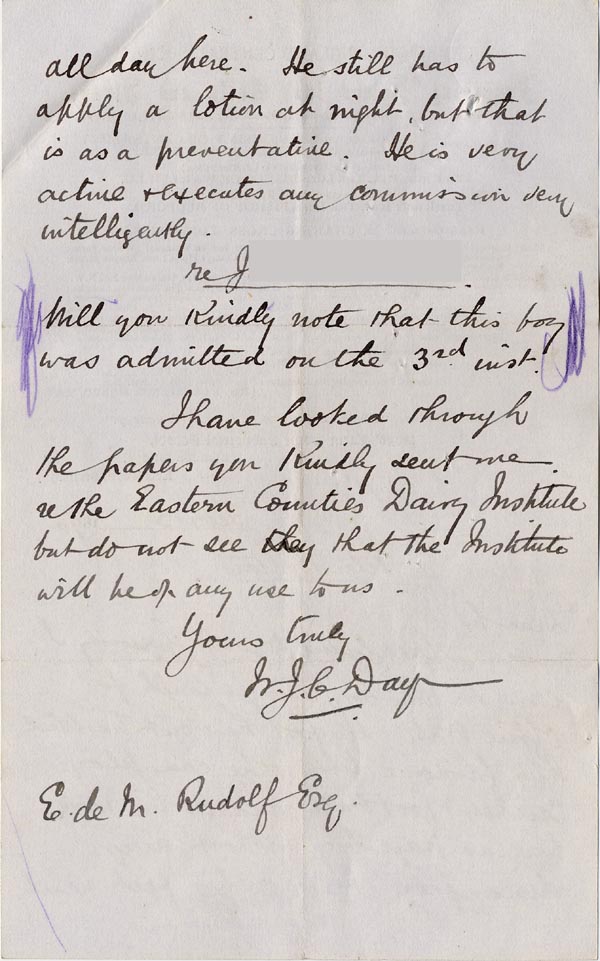 all day here. He still has to
apply a lotion at night, but that
is as a preventative. He is very
active & executes any commission very
intelligently.
re J
Will you Kindly note that this boy
was admitted on the 3rd inst.
I have looked through
the papers you Kindly sent me
re the Eastern Counties Dairy Institute
but do not see they that the Institute
will be of any use to us.
Yours truly
W.J.C. Day
E. de M. Rudolf Esq.